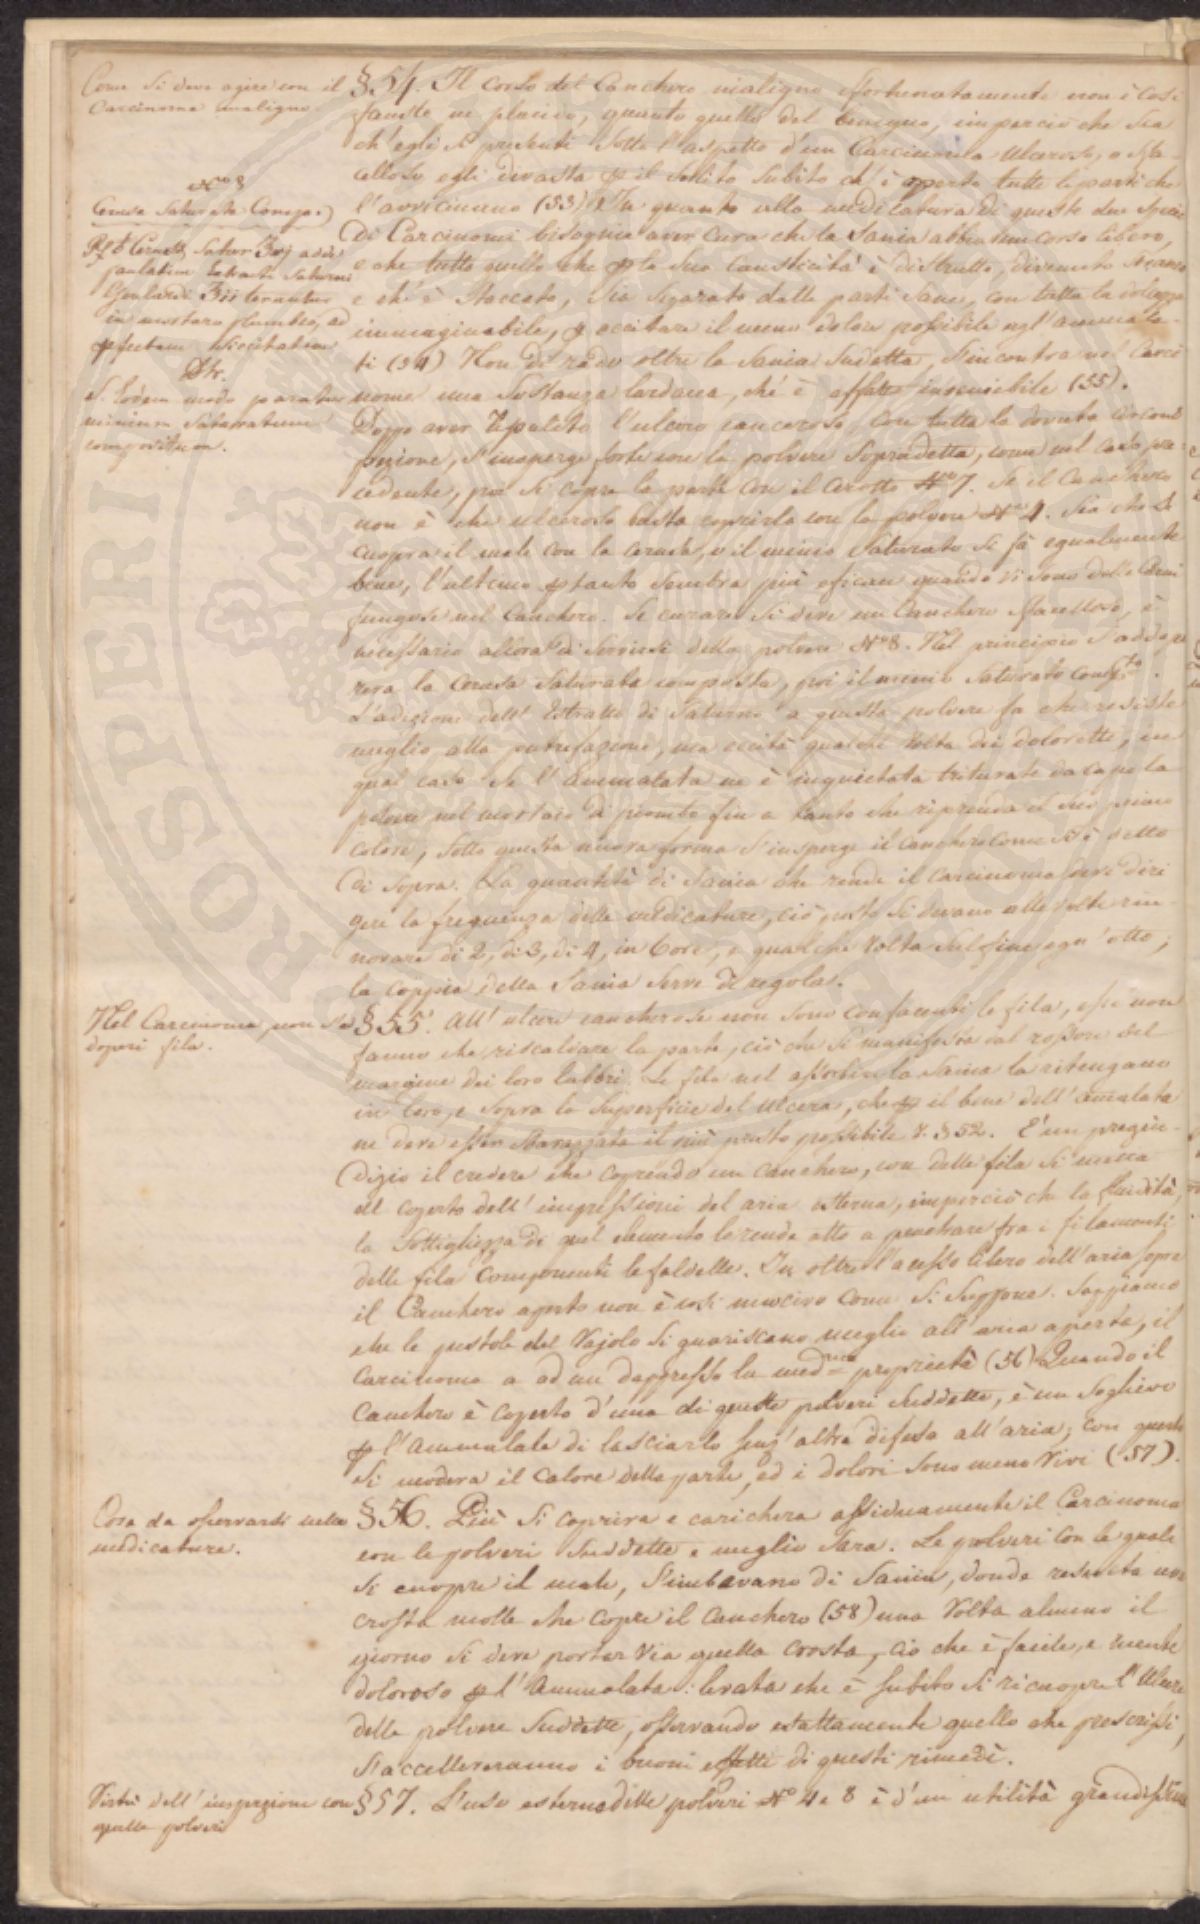 Come si deve agire con il
Carcinoma maligno.
§ 54. Il corso del Canchero maligno sfortunatamente non è così
fausto ne placido, quanto quello del benigno, imperciò che sia
ch'egli si presenti sotto l'aspetto d'un Carcinoma Ulceroso, o sfa-
celloso egli devasta p il solito subito ch'è aperto tutte le parti che
l'avvicinano (53). In quanto alla medicatura di queste due specie
Di Carcinomi bisogna aver cura che la Sania abbia un corso libero,
e che tutto quello che p la sua Causticità è distrutto, divenuto
e ch'è staccato, sia separato dalle parti sane, con tutta la dolcezza
immaginabile, p eccitare il meno dolore possibile agl'ammala-
ti (54) Non di rado oltre la Sania sudetta, s'incontra nel Carci
noma una sostanza lardacea, ch'è affatto insensibile (55).
Doppo aver ripulito l'ulcero canceroso, con tutta la dovuta circons
pezione, s'insperge forte con la polvere sopradetta, come nel caso pre
cedente, poi si copre la parte con il Cerotto N° 7. Se il Canchero
non è che ulceroso basta coprirlo con la polvere N° 4. Sia che si
cuopra il male con la cerusa, o il minio saturato si fà egualmente
bene, l'ultimo p tanto sembra più eficace quando vi sono delle Carni
fungose nel Canchero. Se curare si deve un Canchero sfacelloso, è
necessario allora di servirsi della polvere N° 8. Nel principio s'addope
rera la Cerusa saturata composta, poi il minio saturato comp.to
L'adizione dell'Estratto di Saturno a questa polvere fa che resiste
meglio alla putrefazione, ma eccita qualche volta dei doloretti, in
qual caso se l'ammalata ne è inquietata triturate da capo la
polvere nel mortaio di piombo fin a tanto che riprenda il suo primo
colore, sotto questa nuova forma s'insperge il canchero come si è detto
di sopra. La quantità di Sania che rende il carcinoma deve diri
gere la frequenza delle medicature, ciò posto si devano alle volte rin-
novare di 2, di 3, di 4, in 6 ore, e qualche volta sul fine ogn'otto;
la coppia della Sania serve di regola.
N° 8
Cerusa Saturata Compos.)
Rp Cerusae Satur ʒvj adde
paulatim Extracti Saturni
Goulardi ʒii terantur
in mortaro plumbeo, ad
pfectam siccitatem
Dtr.
S. Eodem modo paratur
minium Saturatum
compositum.
Nel Carcinoma non s'ad
doperi fila.
§ 55. All'ulcere cancherose non sono confacenti le fila, esse non
fanno che riscaldare la parte, ciò che si manifesta dal rossore del
margine dei loro labbri. Le fila nel assorbire la Sania la ritengano
in loro, e sopra la superficie del Ulcera, che p il bene dell'amalata
ne deve esser sbarazzata il più presto possibile V. § 52. È un pregiu-
dizio il credere che coprendo un canchero, con delle fila si metta
al coperto dell'impressioni del aria esterna, imperciò che la fluidità
la sottigliezza di quel elemento lo rende atto a penetrare fra i filamenti
delle fila componenti le faldelle. In oltre l'acesso libero dell'aria sopra
il Canchero aperto non è così nuocivo come si suppone. Sappiamo
che le pustole del Vajolo si guariscano meglio all'aria aperta, il
Carcinoma a ad un dappresso la med.ma proprietà (56) Quando il
Canchero è coperto d'una di queste polveri suddette, è un soglievo
p l'ammalata di lasciarlo senz'altra difesa all'aria; con questo
si modera il calore della parte, ed i dolori sono meno vivi (57).
Cosa da osservarsi nelle
medicature.
§ 56. Più si coprira e carichera assiduamente il Carcinoma
con le polveri suddette e meglio sara. Le polveri con le quale
si cuopre il male, s'imbevano di Sania, donde resulta una
crosta molle che copre il Canchero (58) una volta almeno il
giorno si deve portar via quella crosta, ciò che è facile, e niente
doloroso p l'Ammalata: levata che è subito si ricuopre l'Ulcere
delle polvere suddette, osservando esattamente quello che prescrissi,
s'accellereranno i buoni effetti di questi rimedi.
Virtù dell'inspersione con
quelle polveri
§ 57. L'uso esterno delle polveri N° 4 e 8 è d'un utilità grandissima